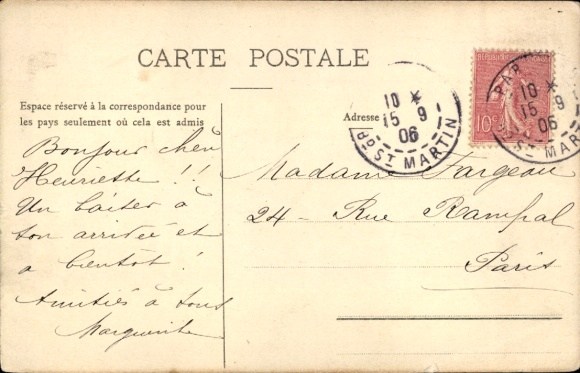 CARTE POSTALE
Espace réservé à la correspondance pour
les pays seulement où cela est admis
Adresse
Bonjour chère
Henriette !!
Un baiser à
ton arrivée et
a bientôt !
Amitiés à tous
Marguerite
Madame Fargeau
24 - Rue Rampal
Paris
10 *
15 9
06
Pte ST MARTIN
RÉPUBLIQUE FRANÇAISE
10c
PARIS
10 *
15 9
06
ST MAR